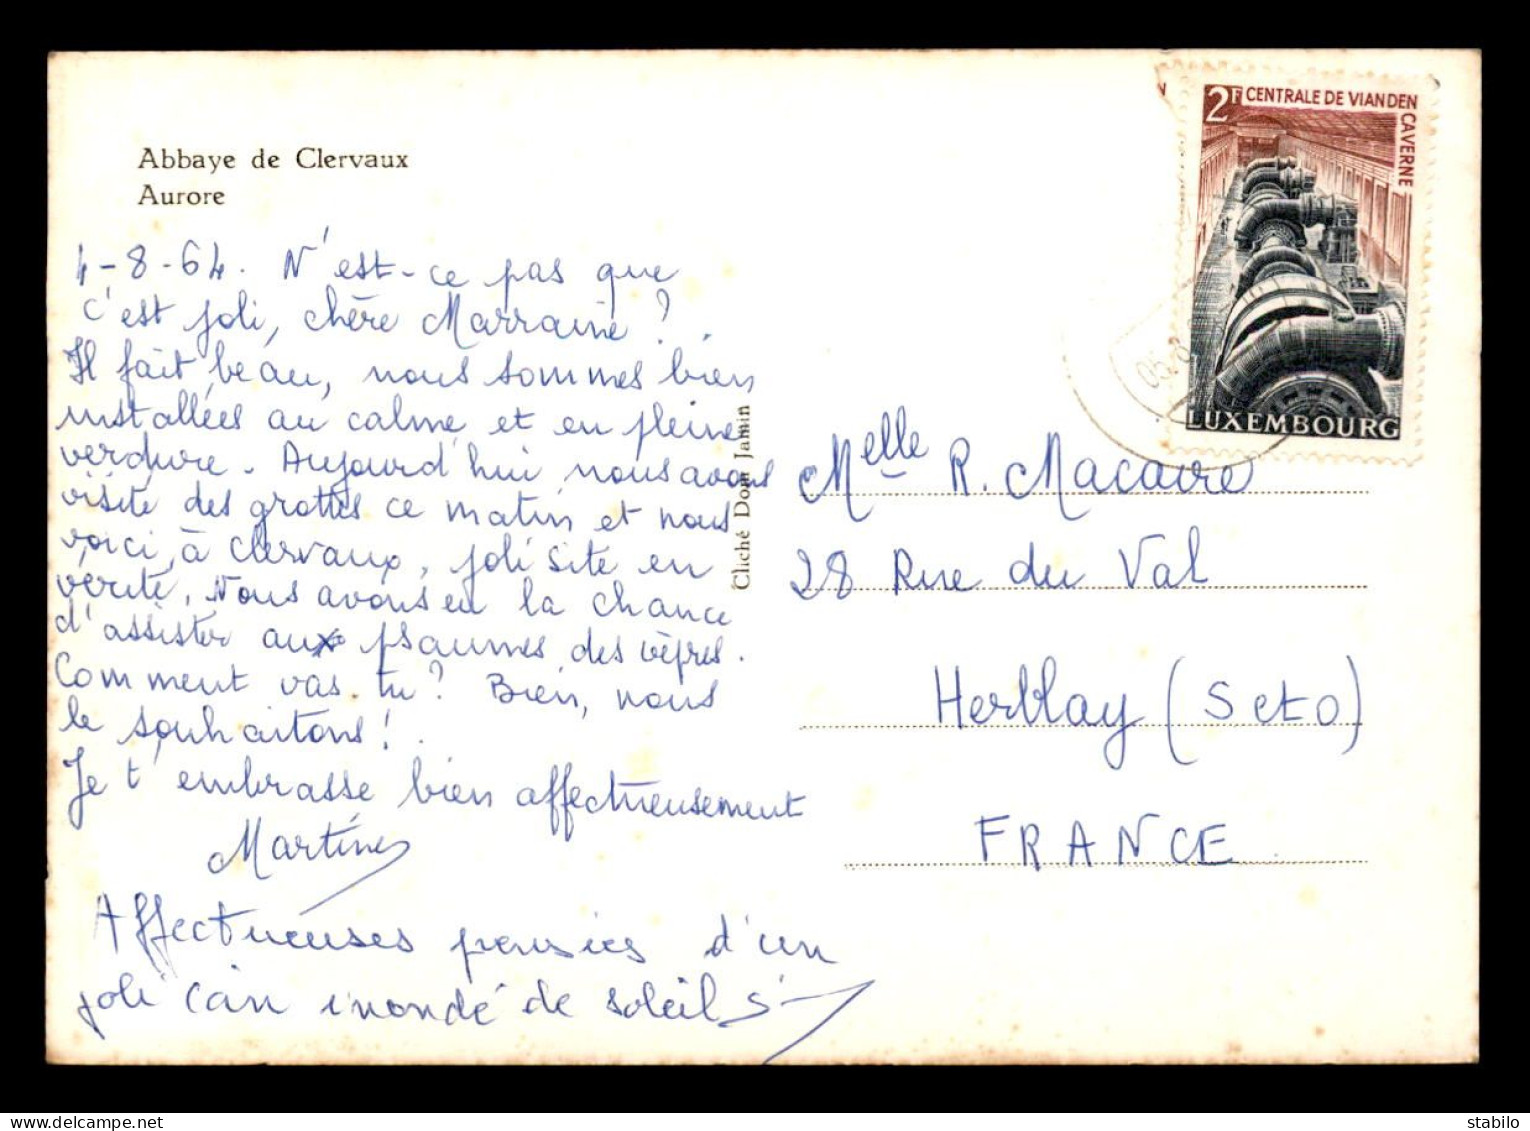 Abbaye de Clervaux
Aurore
4-8-64. N'est-ce pas que
c'est joli, chère Marraine ?
Il fait beau, nous sommes bien
installées au calme et en pleine
verdure. Aujourd'hui nous avons
visité des grottes ce matin et nous
voici à Clervaux, joli site en
vérité. Nous avons eu la chance
d'assister aux psaumes des vêpres.
Comment vas-tu ? Bien, nous
le souhaitons !
Je t'embrasse bien affectueusement
Martine
Affectueuses pensées d'un
joli coin inondé de soleil
Cliché Dom Jamin
2F CENTRALE DE VIANDEN
CAVERNE
LUXEMBOURG
05.8
Melle R. Macaire
28 Rue du Val
Herblay (S et O)
FRANCE
stabilo